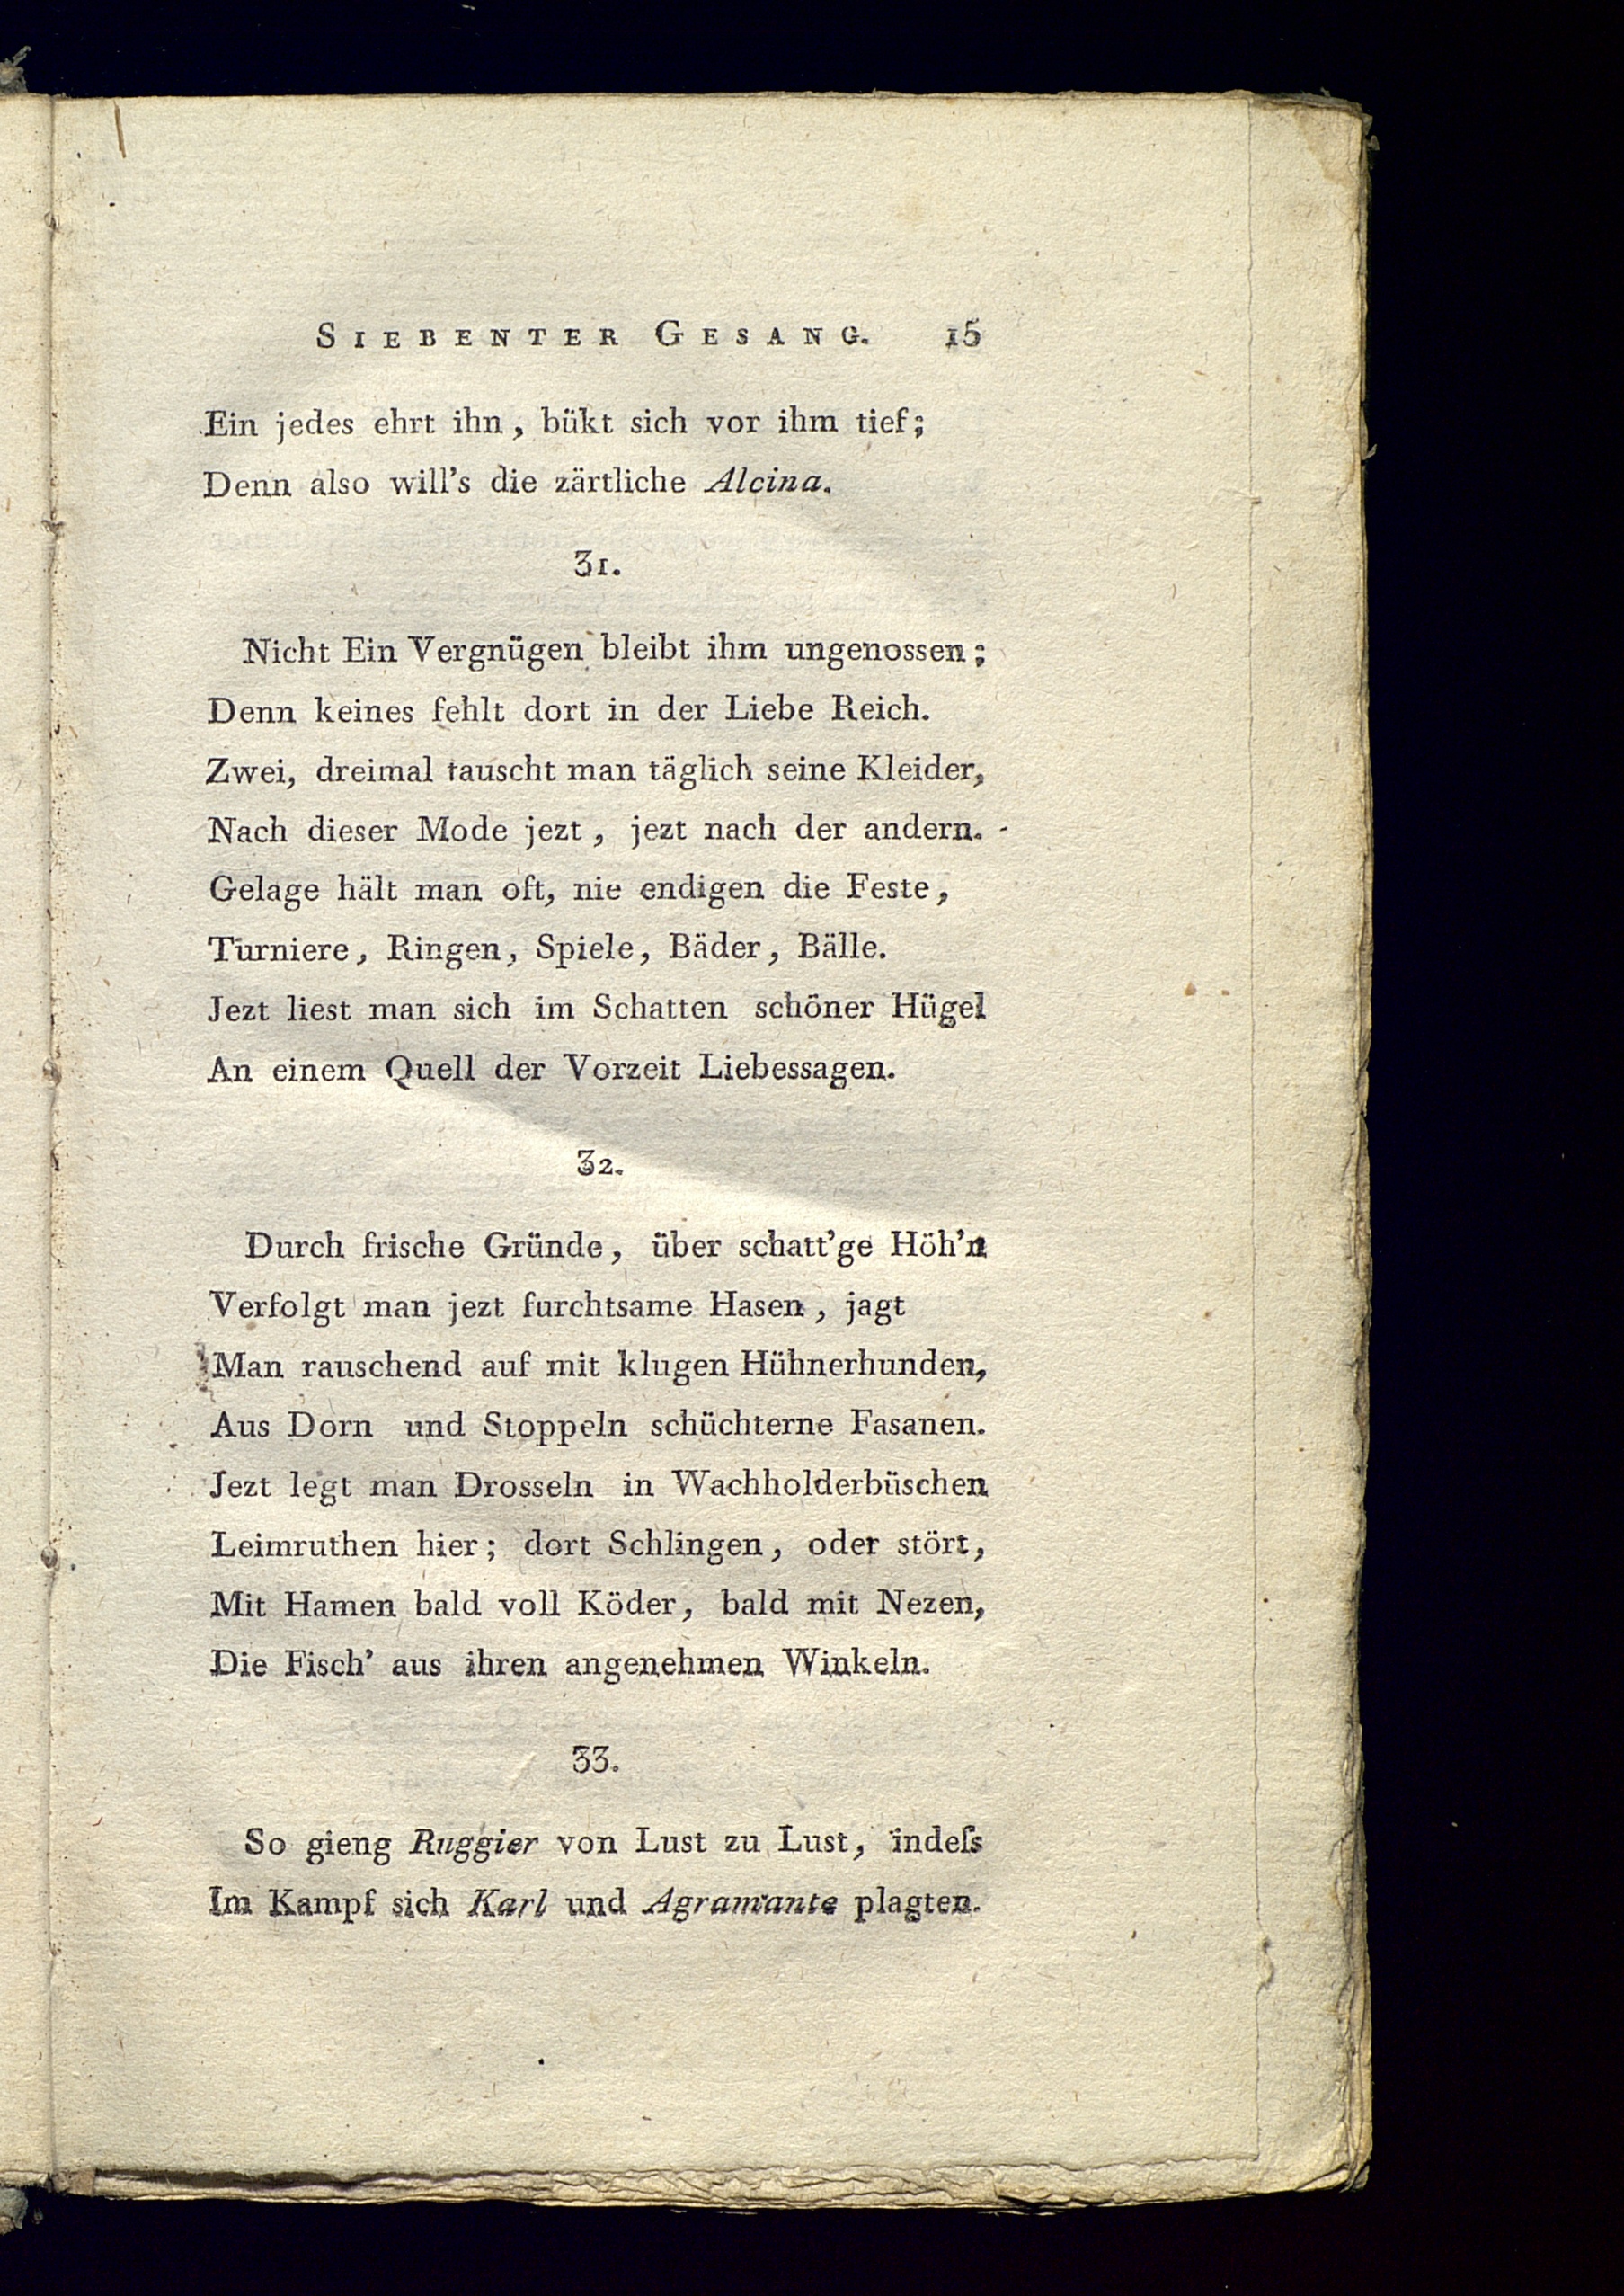 SIEBENTER GESANG. 15
Ein jedes ehrt ihn, bükt sich vor ihm tief;
Denn also will's die zärtliche Alcina.
31.
Nicht Ein Vergnügen bleibt ihm ungenossen;
Denn keines fehlt dort in der Liebe Reich.
Zwei, dreimal tauscht man täglich seine Kleider,
Nach dieser Mode jezt, jezt nach der andern.
Gelage hält man oft, nie endigen die Feste,
Turniere, Ringen, Spiele, Bäder, Bälle.
Jezt liest man sich im Schatten schöner Hügel
An einem Quell der Vorzeit Liebessagen.
32.
Durch frische Gründe, über schatt'ge Höh'n
Verfolgt man jezt furchtsame Hasen, jagt
Man rauschend auf mit klugen Hühnerhunden,
Aus Dorn und Stoppeln schüchterne Fasanen.
Jezt legt man Drosseln in Wachholderbüschen
Leimruthen hier; dort Schlingen, oder stört,
Mit Hamen bald voll Köder, bald mit Nezen,
Die Fisch' aus ihren angenehmen Winkeln.
33.
So gieng Ruggier von Lust zu Lust, indeſs
Im Kampf sich Karl und Agramante plagten.